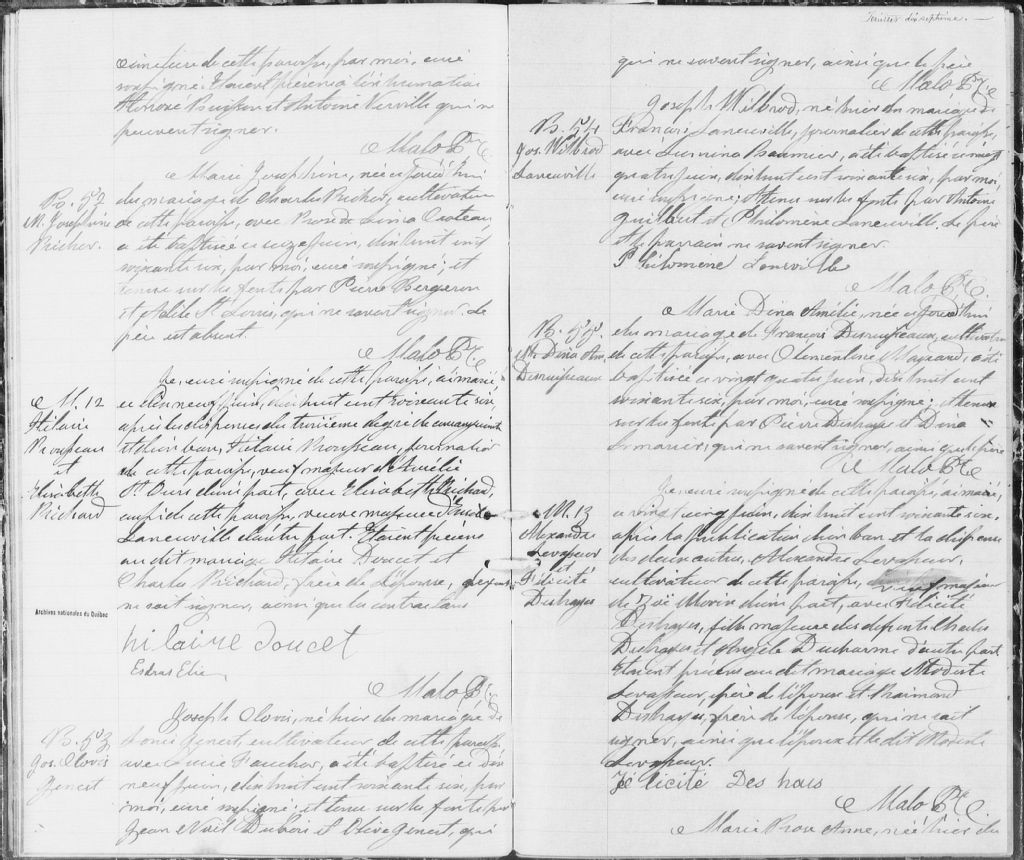 cimetière de cette paroisse, par moi, curé
soussigné. Etaient présens à l'inhumation
Antoine Verville qui ne
peuvent signer.
Malo Ptre.
B. 52
M. Josephine
Richer.
Marie Josephine, née aujourd'hui
du mariage de Charles Richer, cultivateur
de cette paroisse, avec Rose de Lima Croteau
a été baptisée ce onze juin, dix huit cent
soixante six, par moi, curé soussigné; et
tenue sur les fonts par Pierre Bergeron
et Adile St Louis, qui ne savent signer. Le
père est absent.
Malo Ptre.
M. 12
Hilaire
Rousseau
et
Elisabeth
Richard
Je, curé soussigné de cette paroisse, ai marié,
ce dix neuf juin, dix huit cent soixante six,
après la dispense du troisième degré de consanguinité
et d'un ban, Hilaire Rousseau, journalier
de cette paroisse, veuf majeur d'Aurélie
St Ours d'une part, avec Elisabeth Richard,
aussi de cette paroisse, veuve majeure de
Laneuville d'autre part. Etaient présens
au dit mariage Hilaire Doucet et
Charles Richard, frère de l'épouse,
ne sait signer, ainsi que les contractans
hilaire doucet
Esdras Elie
Malo Ptre.
B. 53
Jos. Clovis
Genest
Joseph Clovis, né hier du mariage de
Louis Genest, cultivateur de cette paroisse,
avec Luce Faucher, a été baptisé ce dix
neuf juin, dix huit cent soixante six, par
moi, curé soussigné; et tenu sur les fonts par
Jean Noël Dubois et Olive Genest, qui
Feuillet dix septième.
qui ne savent signer, ainsi que le père
Malo Ptre.
B. 54
Jos. Wilbrod
Laneuville
Joseph Wilbrod, né hier du mariage de
François Laneuville, journalier de cette paroisse,
avec Beaumier, a été baptisé ce vingt
quatre juin, dix huit cent soixante six, par moi,
curé soussigné; et tenu sur les fonts par Antoine
Guilbault et Philomène Laneuville. Le père
et le parrain ne savent signer.
Philomene Lanevill
Malo Ptre.
B. 55.
M. Dina Am.
Desruisseaux
Marie Dina Amélie, née aujourd'hui
du mariage de François Desruisseaux, cultivateur
de cette paroisse, avec Clementine Maynard, a été
baptisée ce vingt quatre juin, dix huit cent
soixante six, par moi, curé soussigné; et tenue
sur les fonts par Pierre Deshayes et Dina
Lemarier, qui ne savent signer ainsi que le père
Malo Ptre.
M. 13
Alexandre
Levasseur
et
Félicité
Deshayes
Je, curé soussigné de cette paroisse, ai marié,
ce vingt cinq juin, dix huit cent soixante six,
après la publication d'un ban et la dispense
des deux autres, Alexandre Levasseur,
cultivateur de cette paroisse, veuf majeur
de Zoé Morin d'une part, avec Félicité
Deshayes, fille majeure des defunts Charles
Deshayes et Angèle Ducharme d'autre part
Etaient présens au dit mariage Modeste
Levasseur, frère de l'époux et Raimond
Deshayes, frère de l'épouse, qui ne sait
signer, ainsi que l'époux et le dit Modeste
Levasseur.
Félicité Des hais
Malo Ptre.
Marie Rose Anne, née hier du
Archives nationales du Québec